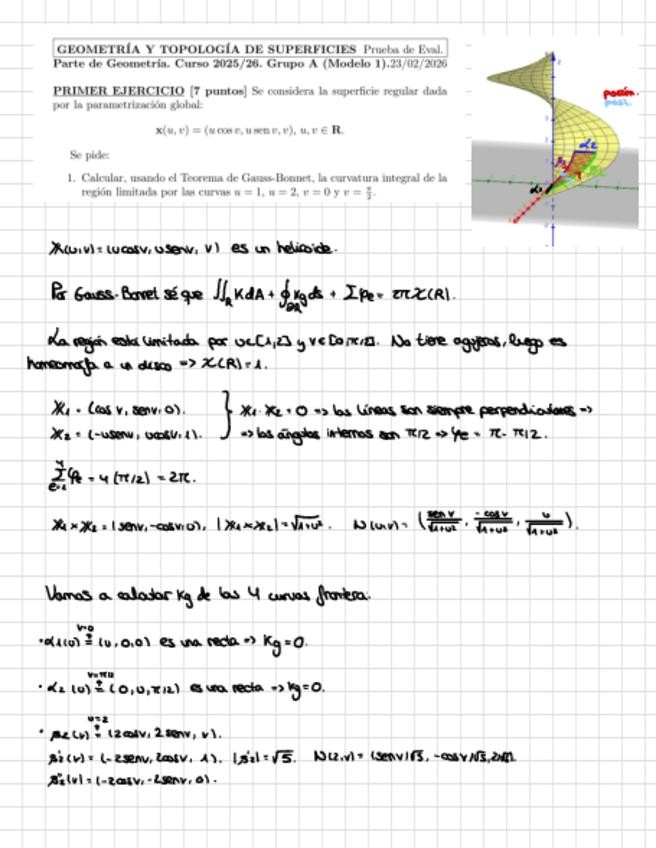 GEOMETRÍA Y TOPOLOGÍA DE SUPERFICIES Prueba de Eval.
Parte de Geometría. Curso 2025/26. Grupo A (Modelo 1).23/02/2026
PRIMER EJERCICIO [7 puntos] Se considera la superficie regular dada
por la parametrización global:
x(u, v) = (u cos v, u sen v, v), u, v ∈ R.
Se pide:
1. Calcular, usando el Teorema de Gauss-Bonnet, la curvatura integral de la
región limitada por las curvas u = 1, u = 2, v = 0 y v = π/2.
α2
α1
X(u,v) = (ucosv, usenv, v) es un helicoide.
Por Gauss-Bonnet sé que ∬_R KdA + ∮_∂R kg ds + Σφe = 2πχ(R).
La región está limitada por u∈[1,2] y v∈[0,π/2]. No tiene agujeros, luego es
homeomorfa a un disco => χ(R) = 1.
X1 = (cos v, senv, 0). } X1·X2 = 0 => las líneas son siempre perpendiculares =>
X2 = (-usenv, ucosv, 1). => los ángulos internos son π/2 => φe = π - π/2.
Σ φe = 4(π/2) = 2π.
X1×X2 = (senv, -cosv, u), |X1×X2| = √1+u². N(u,v) = (sen v/√1+u², -cos v/√1+u², u/√1+u²).
Vamos a calcular Kg de las 4 curvas frontera:
• α1(u) v=0 = (u, 0, 0) es una recta => Kg = 0.
• α2(u) v=π/2 = (0, u, π/2) es una recta => Kg = 0.
• β2(v) u=2 = (2cosv, 2senv, v).
β2'(v) = (-2senv, 2cosv, 1). |β2'| = √5. N(2,v) = (senv/√5, -cosv/√5, 2/√5).
β2''(v) = (-2cosv, -2senv, 0).